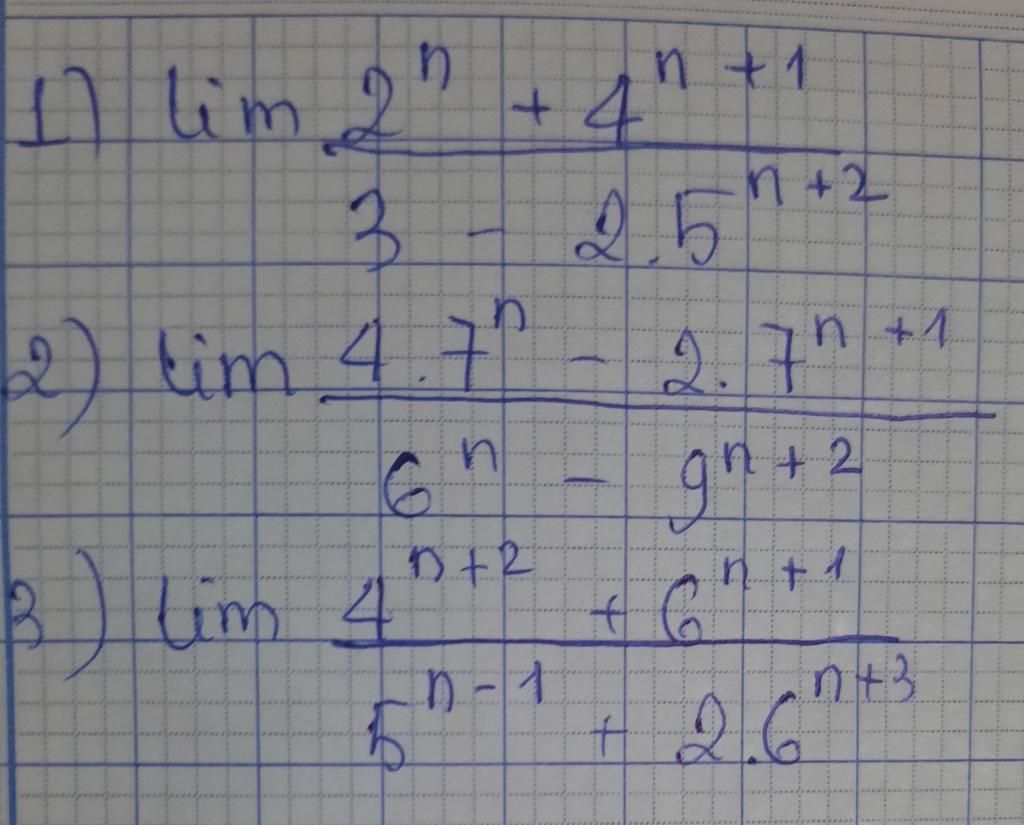 1) lim 2^n + 4^{n+1}
3 - 2.5^{n+2}
2) lim 4.7^n - 2.7^{n+1}
6^n - 9^{n+2}
3) lim 4^{n+2} + 6^{n+1}
5^{n-1} + 2.6^{n+3}